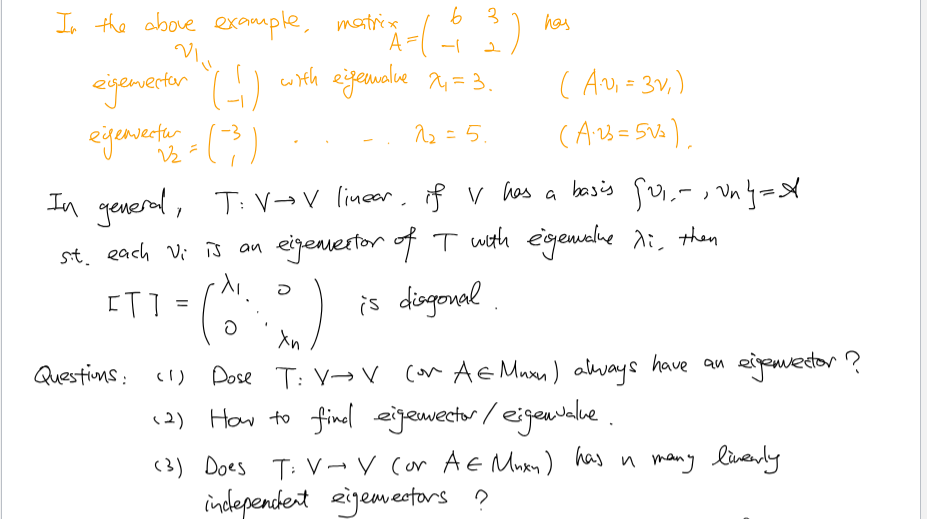 In the above example, matrix A = ( 6 3 -1 2 ) has
eigenvector v₁ = ( 1 -1 ) with eigenvalue λ₁ = 3. ( A·v₁ = 3v₁ )
eigenvector v₂ = ( -3 1 ) . . - . λ₂ = 5. ( A·v₂ = 5v₂ ).
In general, T: V → V linear. if V has a basis {v₁, - , vn} =
s.t. each vi is an eigenvector of T with eigenvalue λi, then
[T] = ( λ₁ . 0 0 . . λn ) is diagonal.
Questions: (1) Dose T: V → V (or A ∈ Mnxn) always have an eigenvector ?
(2) How to find eigenvector / eigenvalue.
(3) Does T: V → V (or A ∈ Mnxn) has n many linearly
independent eigenvectors ?